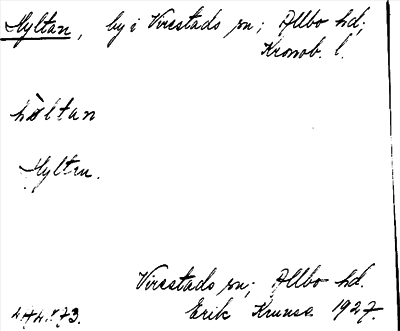 Hyltan, by i Virestads sn; Allbo hd;
Kronob. l.
hòltan
Hyltan.
Virestads sn; Allbo hd.
Erik Kruuse. 1927